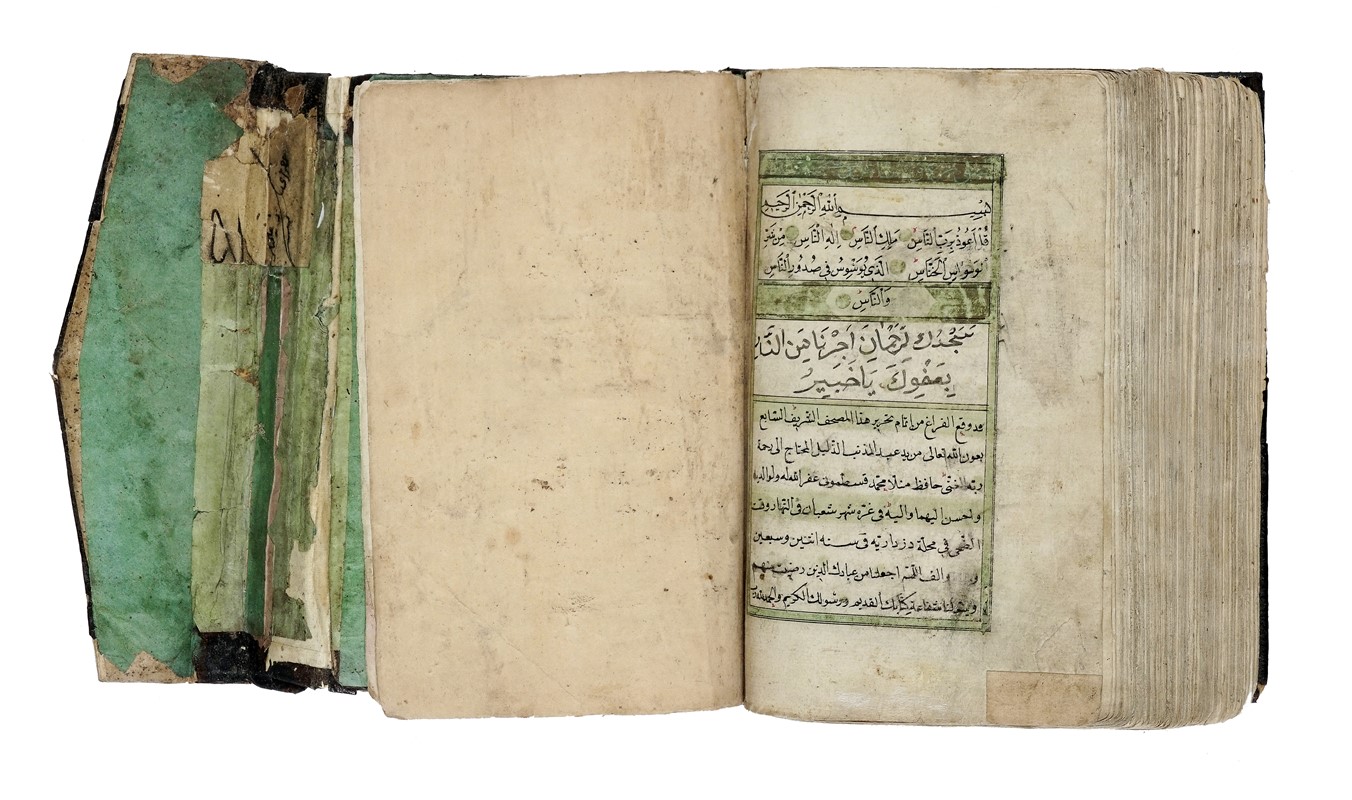 بسم الله الرحمن الرحيم
قل اعوذ برب الناس ملك الناس اله الناس من شر
الوسواس الخناس الذى يوسوس فى صدور الناس
والناس
اجرنا من
بعفوك يا خبير
قد وقع الفراغ من اتمام تحرير هذا المصحف الشريف السابع
بعون الله تعالى من يد عبد المذنب الذليل المحتاج الى رحمة
ربه الغنى حافظ منلا محمد قسطمونى غفر الله له ولوالديه
واحسن اليهما واليه فى غره شهر شعبان فى النهار وقت
الضحى فى محلة فى سنه اثنين وسبعين
والف اللهم اجعلنا من عبادك الذين رضيت منهم
شفاعة كتابك القديم ورسولك الكريم والحمد لله